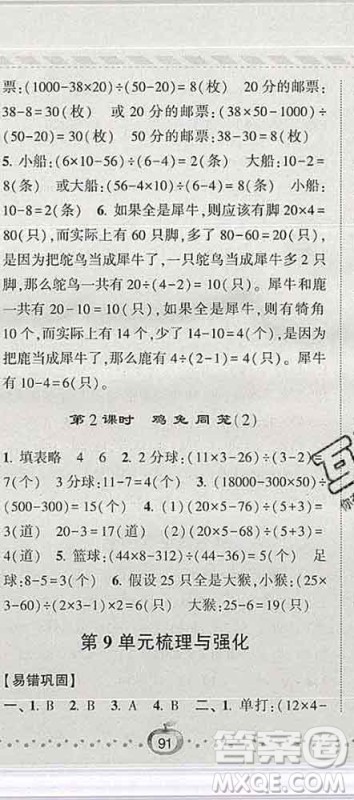 票:(1000-38×20)÷(50-20)=8(枚) 20分的邮票:
38-8=30(枚) 或20分的邮票:(38×50-1000)÷
(50-20)=30(枚) 50分的邮票:38-30=8(枚)
5. 小船:(6×10-56)÷(6-4)=2(条) 大船:10-2=
8(条) 或大船:(56-4×10)÷(6-4)=8(条) 小船:
10-8=2(条) 6. 如果全是犀牛,则应该有20×4=
80(只),而实际上有60只脚,多了80-60=20(只),
是因为把鸵鸟当成犀牛了,一只鸵鸟当成犀牛多2只
脚,那么把鸵鸟当成犀牛的有20÷2=10(只)。犀牛
和鹿共有20-10=10(只),如果全是鹿,则有犄角
20个,而实际上有14个,少了20-14=6(个),是因
为把犀牛当成鹿了,那么有6÷(2-1)=6(只)犀牛
当成鹿了,那么鹿有4÷(2-1)=4(只)。犀牛
有10-4=6(只)。
第2课时 鸡兔同笼(2)
1. 填表略 4 6 2. 2分球:(11×3-26)÷(3-2)=
7(个) 3分球:11-7=4(个) 3. (18000-300×50)÷
(500-300)=15(个) 4. (20×10-185)÷(10-5)=
3(道) 20-3=17(道) 或(185+5×20)÷(5+10)=
17(道) 5. 篮球:(44×8-316)÷(44-36)=5(个) 足
球:8-5=3(个) 6. 假设小猴全是大猴,(25×
3-57)÷(3-2)=18(只) 大猴:25-18=7(只)
第9单元梳理与强化
【易错巩固】
一、1. B 2. B 3. A 4. B 二、1. 单打:(12×4-
91
答案圈
MXQE.COM